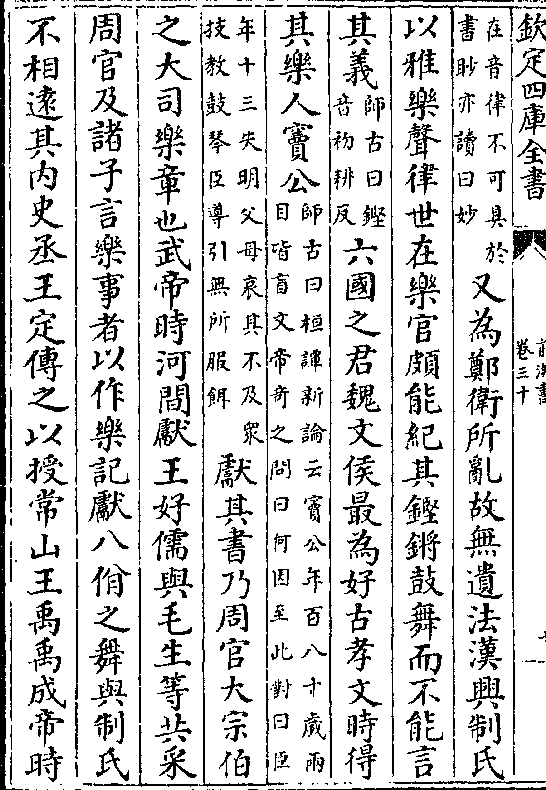 欽定四庫全書
前漢書
卷三十
在音律不可具於
書眇亦讀曰妙
又為鄭衛所亂故無遺法漢興制氏
以雅樂聲律世在樂官頗能紀其鏗鏘鼓舞而不能言
其義
師古曰鏗
音初耕反
六國之君魏文侯最為好古孝文時得
其樂人竇公
師古曰桓譚新論云竇公年百八十歲兩
目皆盲文帝奇之問曰何因至此對曰臣
年十三失明父母哀其不及衆
技教鼓琴臣導引無所服餌
獻其書乃周官大宗伯
之大司樂章也武帝時河間獻王好儒與毛生等共采
周官及諸子言樂事者以作樂記獻八佾之舞與制氏
不相遠其内史丞王定傳之以授常山王禹禹成帝時